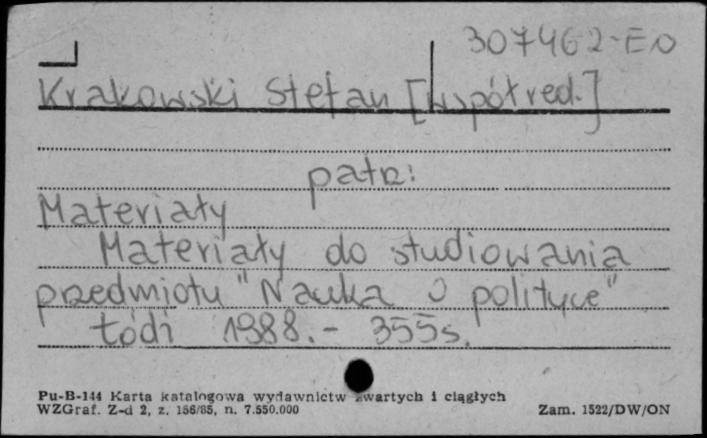 307462-EO
Krakowski Stefan [współred.]
patrz:
Materiały
Materiały do studiowania
przedmiotu "Nauka o polityce"
Łódź 1988.- 355 s.
Pu-B-144 Karta katalogowa wydawnictw zwartych i ciągłych
WZGraf. Z-d 2, z. 156/85, n. 7.550.000
Zam. 1522/DW/ON